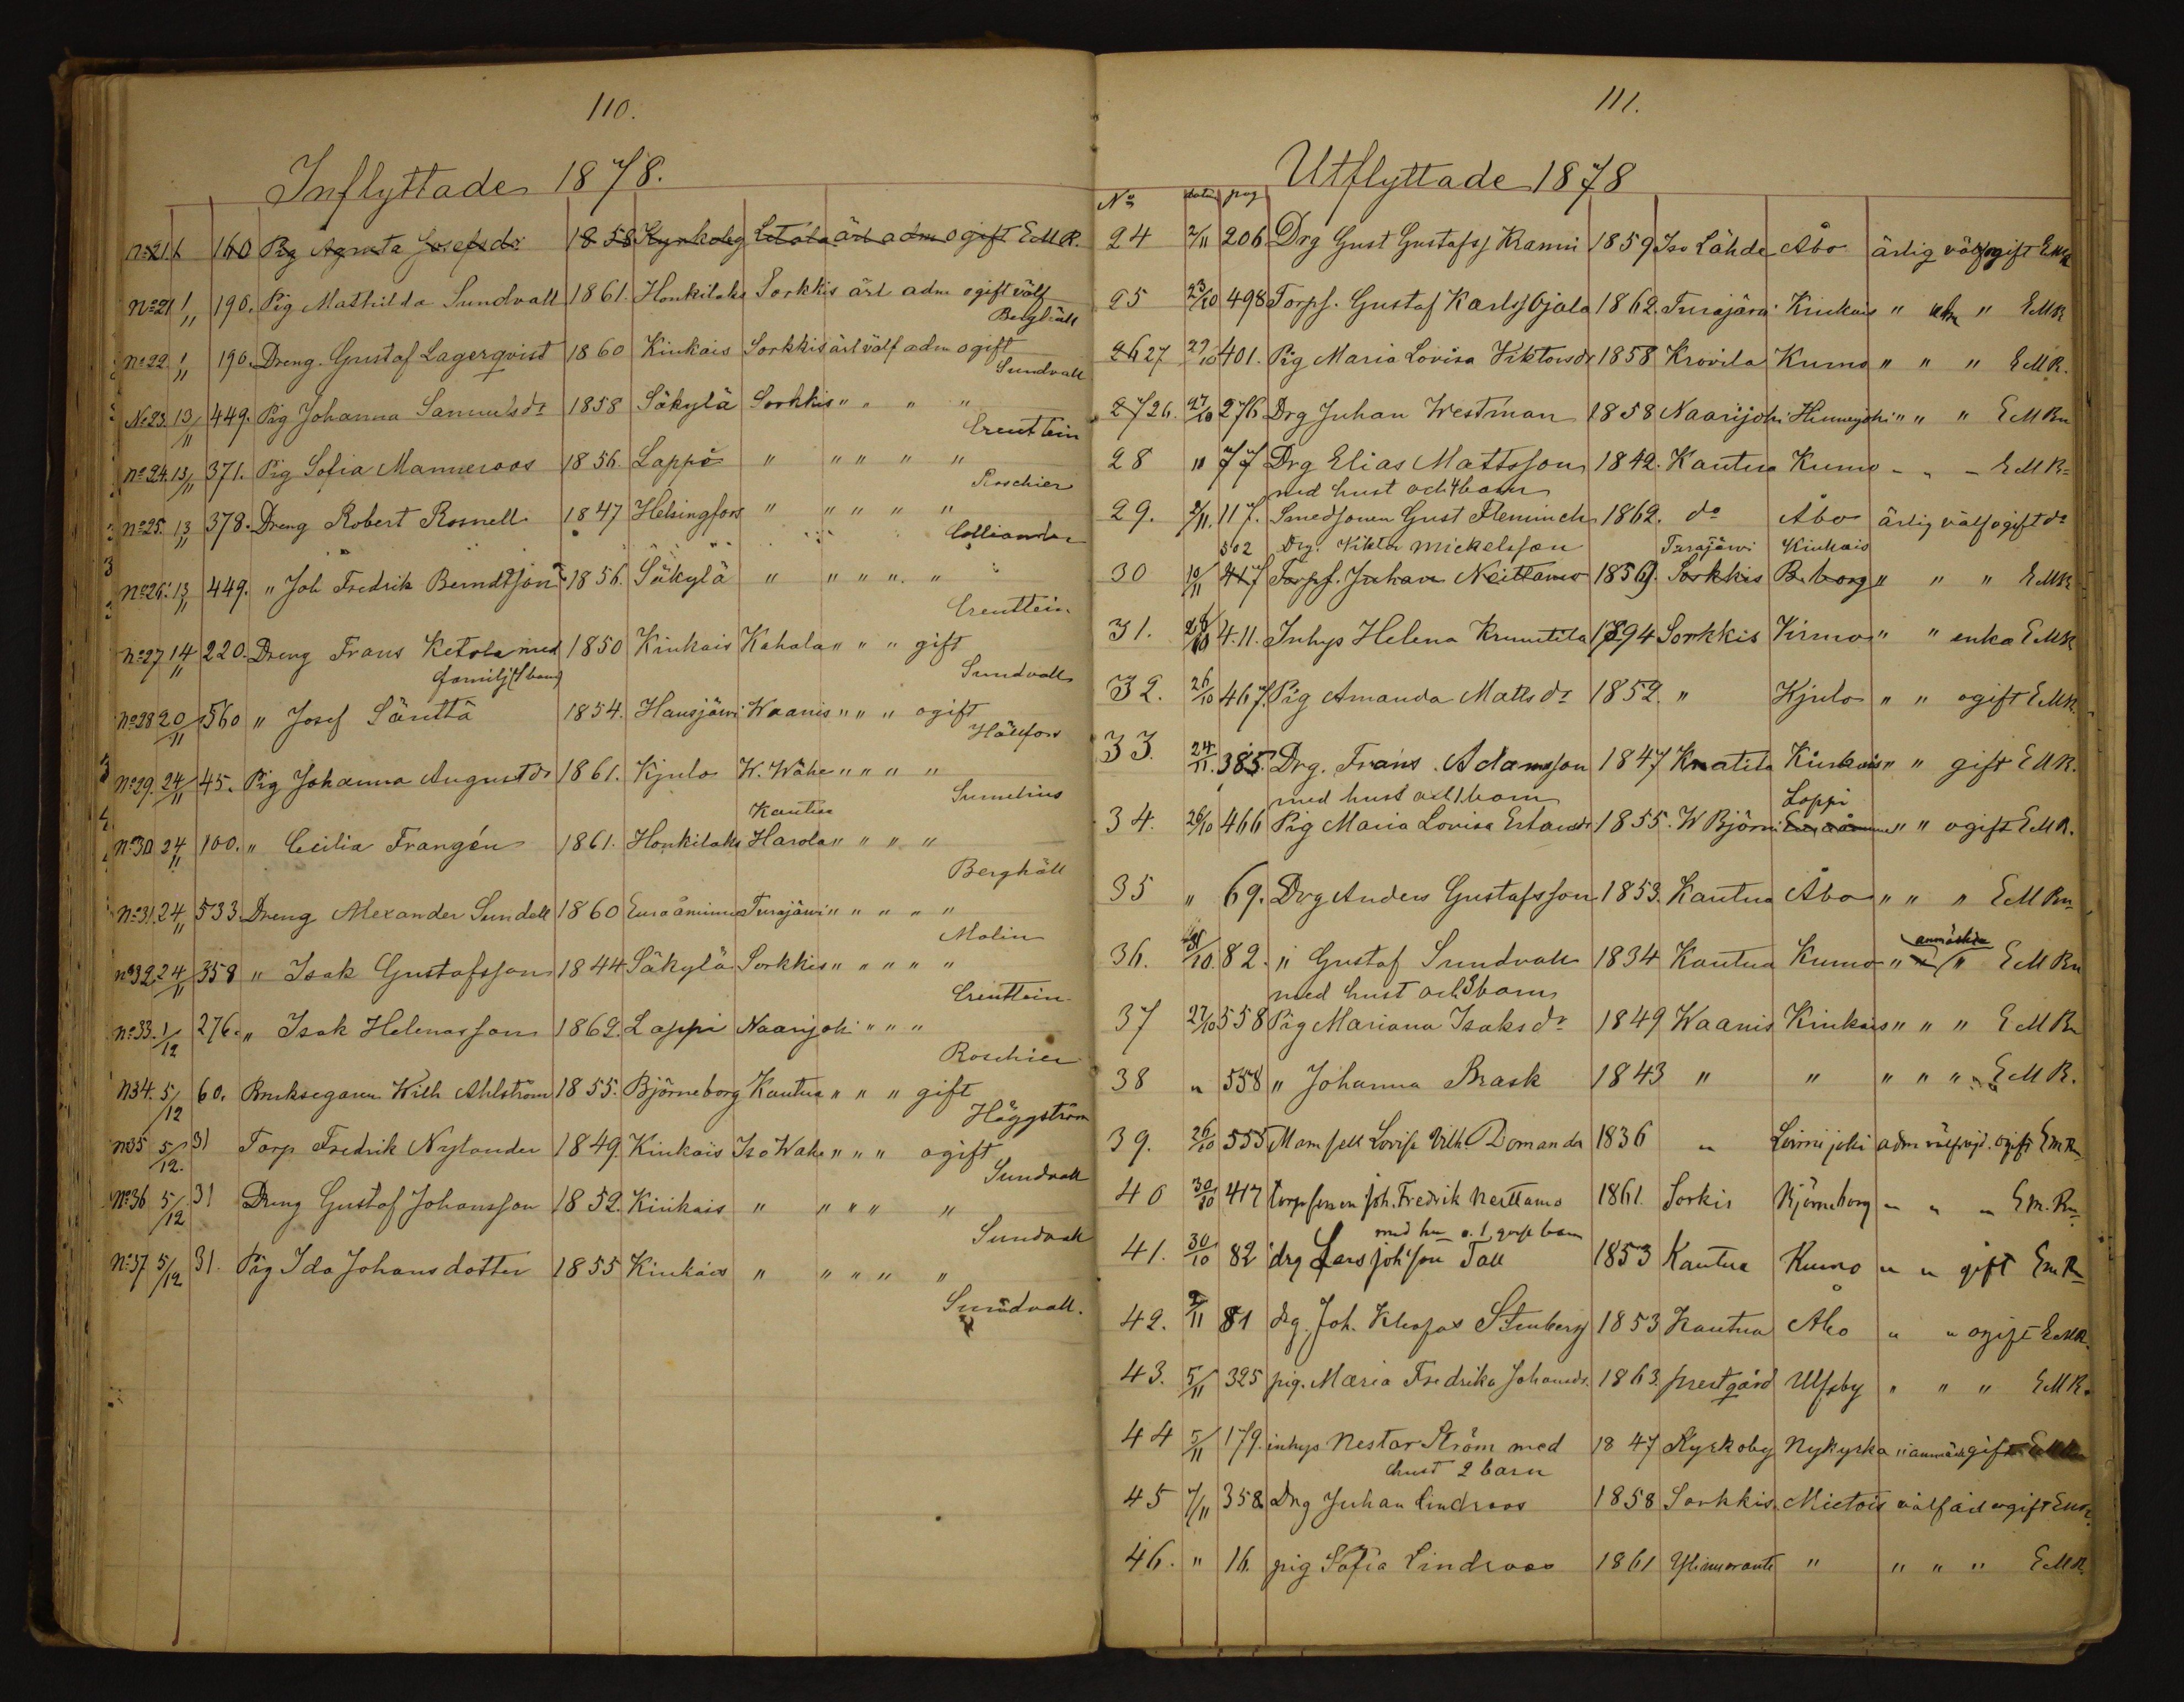 110.
Inflyttade 1878.
No 21 1 160 Pig Agneta Josefsdr 1858 Kyrkoby Letala ärl adm ogift E.M.R.
No 21 1/11 190. Pig Mathilda Sundvall 1861. Honkilaks Sorkkis ärl adm ogift välf
Berghäll
No 22. 1/11 190. Dreng. Gustaf Lagerqvist 1860 Kiukais Sorkkis ärl välf adm ogift
Sundvall
No 23. 13/11 449. Pig Johanna Samuelsdr 1858 Säkylä Sorkkis " " " "
Creuttein
No 24. 13/11 371. Pig Sofia Manneroos 1856. Lappo " " " " " "
Roschier
No 25. 13/11 378. Dreng Robert Rosnell 1847 Helsingfors " " " " " "
Colliander
No 26. 13/11 449. " Joh Fredrik Berndtson 1856. Säkylä " " " " "
Creuttein
No 27 14/11 220. Dreng Frans Ketola med 1850 Kiukais Kahala " " " gift
familj (1 barn)
Sundvall
No 28 20/11 560 " Josef Sänttä 1854. Hansjärvi Waanis " " " ogift
Hällfors
No 29. 24/11 45. Pig Johanna Augustdr 1861. Kjulo W. Wähe " " " "
Sumelius
Kantua
No 30 24/11 100. " Cecilia Frangén 1861. Honkilaks Harola " " " "
Berghäll
No 31. 24/11 533. Dreng Alexander Sundell 1860 Euraåminne Turajärvi " " " " "
Malin
No 32. 24/11 358 " Isak Gustafsson 1844 Säkylä Sorkkis " " " " "
Creuttein
No 33. 1/12 276. " Isak Helenasson 1862. Lappi Naarijoki " " "
Roschier
N 34. 5/12 60. Bruksegaren Wilh Ahlström 1855. Björneborg Kantua " " " gift
Häggström
N 35 5/12. 31 Torp Fredrik Nylander 1849. Kiukais Iso Wahe " " " ogift
Sundvall
No 36 5/12 31 Dreng Gustaf Johansson 1852. Kiukais " " " " "
Sundvall
No 37 5/12 31. Pig Ida Johansdotter 1855 Kiukais " " " " "
Sundvall.
111.
Utflyttade 1878
No datum pag
24 2/11 206 Drg Gust Gustafss Krami 1859 Iso Lähde Åbo ärlig välf ogift EMR
25 23/10 498 Torps. Gustaf Karlss Ojala 1862. Turajärvi Kiukais " " EMR
26 27 29/10 401. Pig Maria Lovisa Viktorsdr 1858 Krovila Kumo " " " EMR.
27 26. 27/10 276 Drg Juhan Westman 1858 Naarijoki Hinnerjoki " " " EMRn
28 " 77 Drg Elias Mattsson 1842. Kantua Kumo - " - EMR
med hust och 4 barn
29. 2/11. 117. Smedsonen Gust Fleminch 1862. do Åbo ärlig välf ogift do
502 Drg. Viktor Mickelsson Turajärvi Kiukais
30 10/11 417 Torps. Juhan Neittamo 1856 Sorkkis B.borg " " " EMR
31. 28/10 411. Inhys Helena Kruutila 1794 Sorkkis Virmo " " enka EMR
32. 26/10 467. Pig Amanda Mattsdr 1852. " Kjulo " " ogift EMR.
33. 24/11. 385. Drg. Frans. Adamsson 1847 Knatila Kiukais " " gift EMR.
med hust och 1 barn Lappi
34. 26/10 466 Pig Maria Lovisa Erlandsdr 1855. W Björni Euraåminne " " ogift EMR.
35 " 69. Drg Anders Gustafsson 1853. Kantua Åbo " " " EMRn
36. 31/10. 82. " Gustaf Sundvall 1834 Kantua Kumo " " EMRn
med hust och 3 barn
37 27/10 558 Pig Mariana Isaksdr 1849 Waanis Kiukais " " " EMRn
38 " 558 " Johanna Brask 1843 " " " " " EMR.
39. 26/10 555 Mamsell Lovisa Vilh. Domander 1836 " Loimijoki adm välfrejd. ogift EmRn
40 30/10 417 torpsonen Joh. Fredrik Neittamo 1861. Sorkis Björneborg " " " Em.Rn
med hu o. 1 barn
41. 30/10 82 drg Lars Joh'son Tall 1853 Kantua Kumo " " gift EmR
42. 2/11 81 drg. Joh. Kleofas Stenberg 1853 Kantua Åbo " " ogift EMR.
43. 5/11 325 pig. Maria Fredrika Johansdr. 1863. prestgård Ulfsby " " " EMR.
44 5/11 179. inhys Nestor Ström med 1847 Kyrkoby Nykyrka " gift
hust 2 barn
45 7/11 358. Drg Juhan Lindroos 1858 Sorkkis Mietois välf ärl ogift EMR.
46. " 16. pig Sofia Lindroos 1861 " " " " EMR.